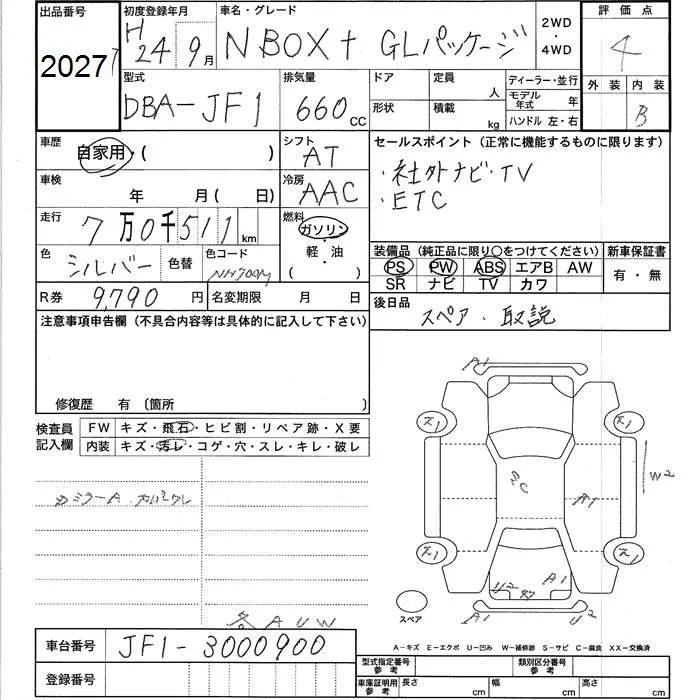 出品番号 初度登録年月 車名・グレード 2WD・4WD 評価点
2027 H24年9月 N BOX + GLパッケージ 4
型式 排気量 ドア 定員 人 ディーラー・並行 外装 内装
DBA-JF1 660cc 形状 積載 kg モデル年式 年 B
ハンドル 左・右
車歴 自家用・( ) シフト AT セールスポイント (正常に機能するものに限ります)
車検 年 月 ( 日) 冷房 AAC ・社外ナビ・TV
・ETC
走行 7万0千511km 燃料 ガソリン
軽・油
( )
色 シルバー 色替 色コード NH700M 装備品 (純正品に限り○をつけてください) 新車保証書
PS PW ABS エアB AW 有・無
SR ナビ TV カワ
R券 9,790円 名変期限 月 日 後日品
スペア・取説
注意事項申告欄 (不具合内容等は具体的に記入して下さい)
修復歴 有 〔箇所 〕
検査員記入欄 FW キズ・飛石・ヒビ割・リペア跡・X要
内装 キズ・汚レ・コゲ・穴・スレ・キレ・破レ
A1
A1
W2
A1
U2
A1
A1
U2
スペア
各AUW
車台番号 JF1-3000900
A-キズ E-エクボ U-凹み W-補修跡 S-サビ C-腐食 XX-交換済
登録番号
型式指定番号 参考 類別区分番号 参考
車庫証明用 参考 長さ cm 幅 cm 高さ cm